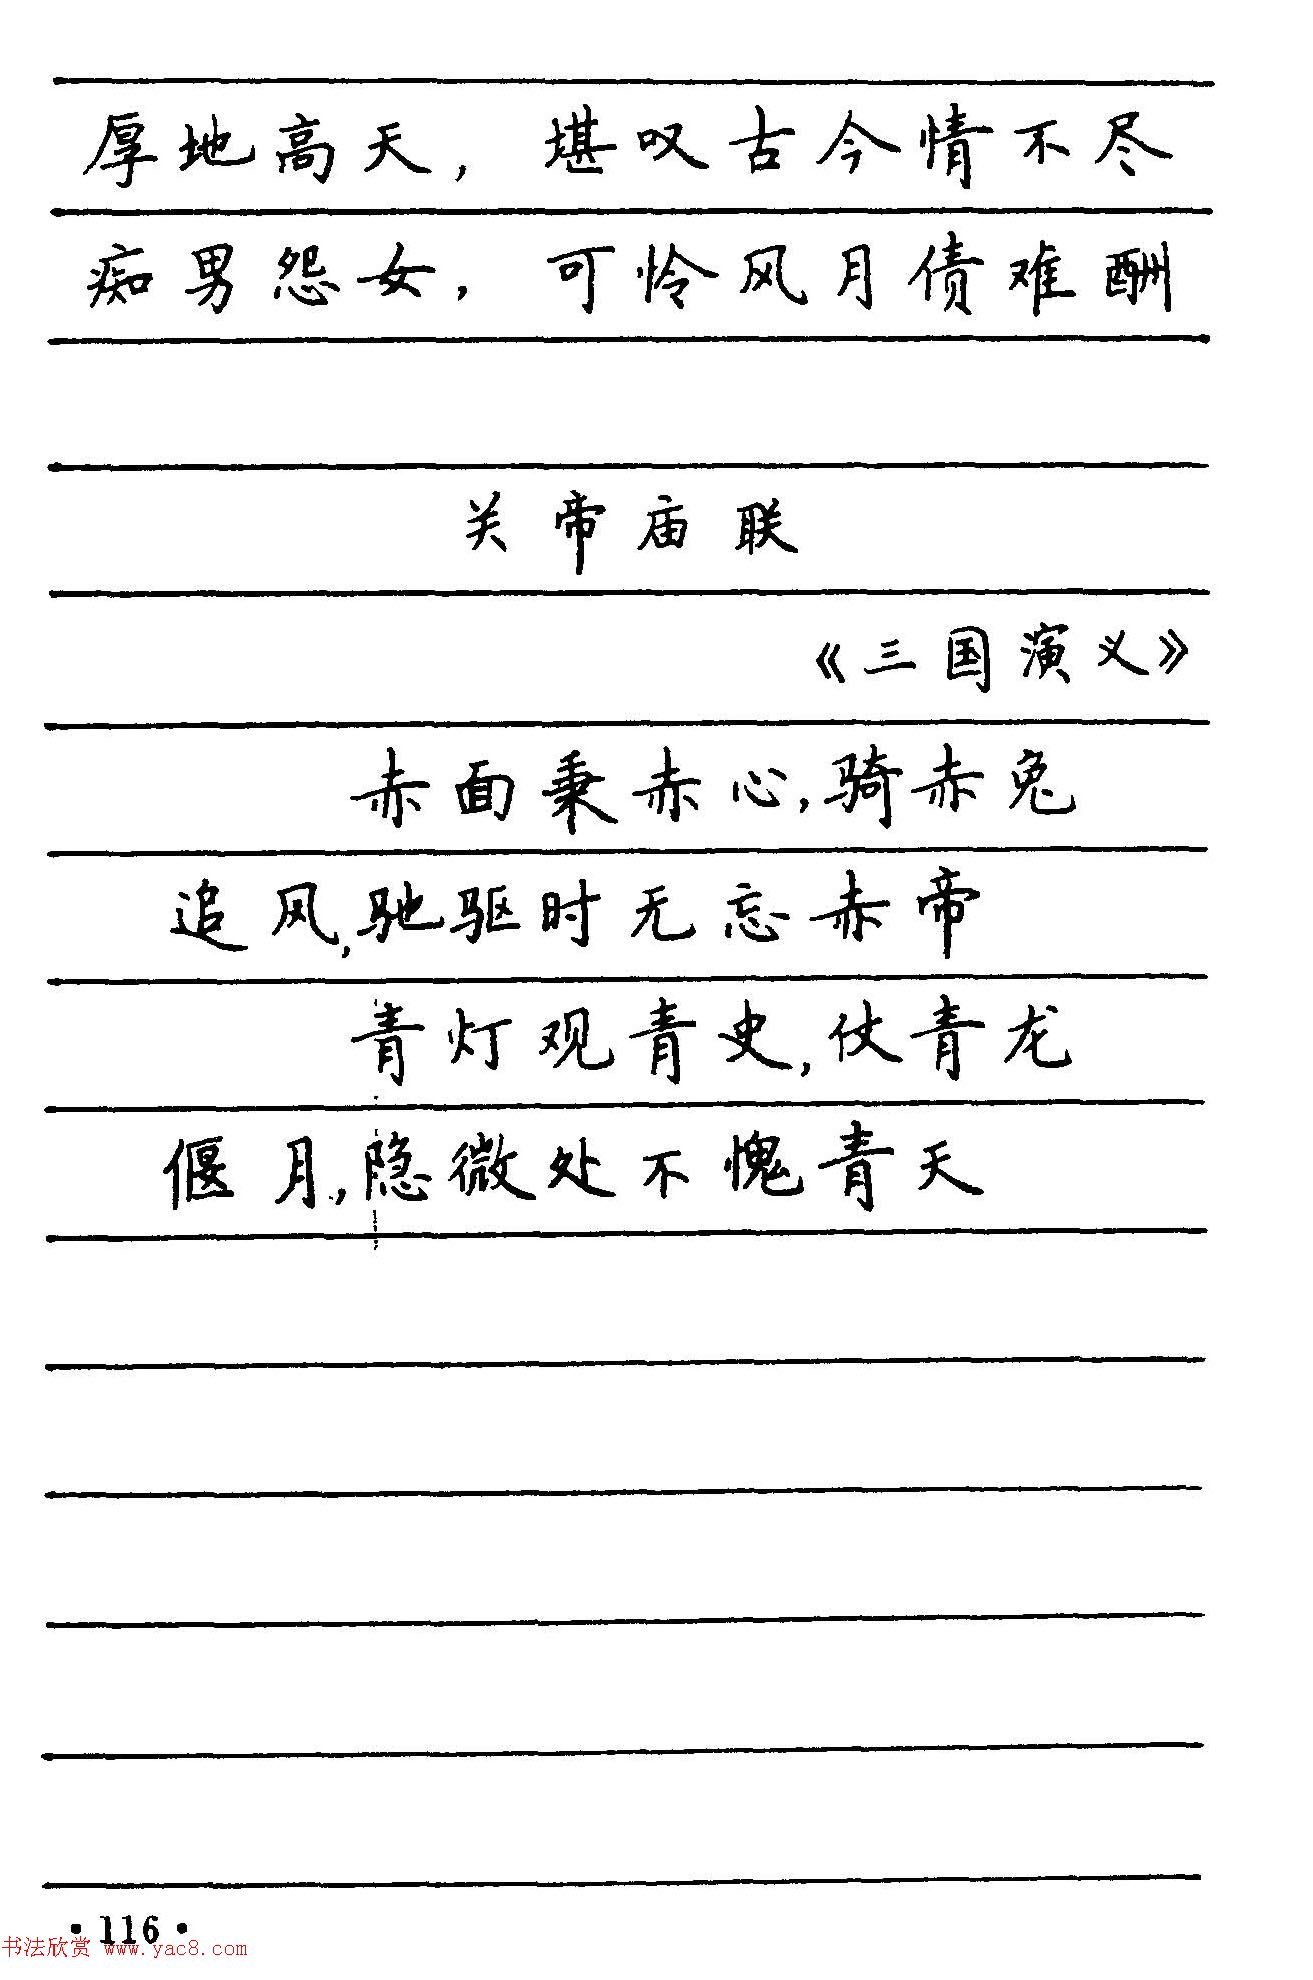 厚地高天，堪叹古今情不尽
痴男怨女，可怜风月债难酬
关帝庙联
《三国演义》
赤面秉赤心，骑赤兔
追风，驰驱时无忘赤帝
青灯观青史，仗青龙
偃月，隐微处不愧青天
·116·
书法欣赏 www.yac8.com